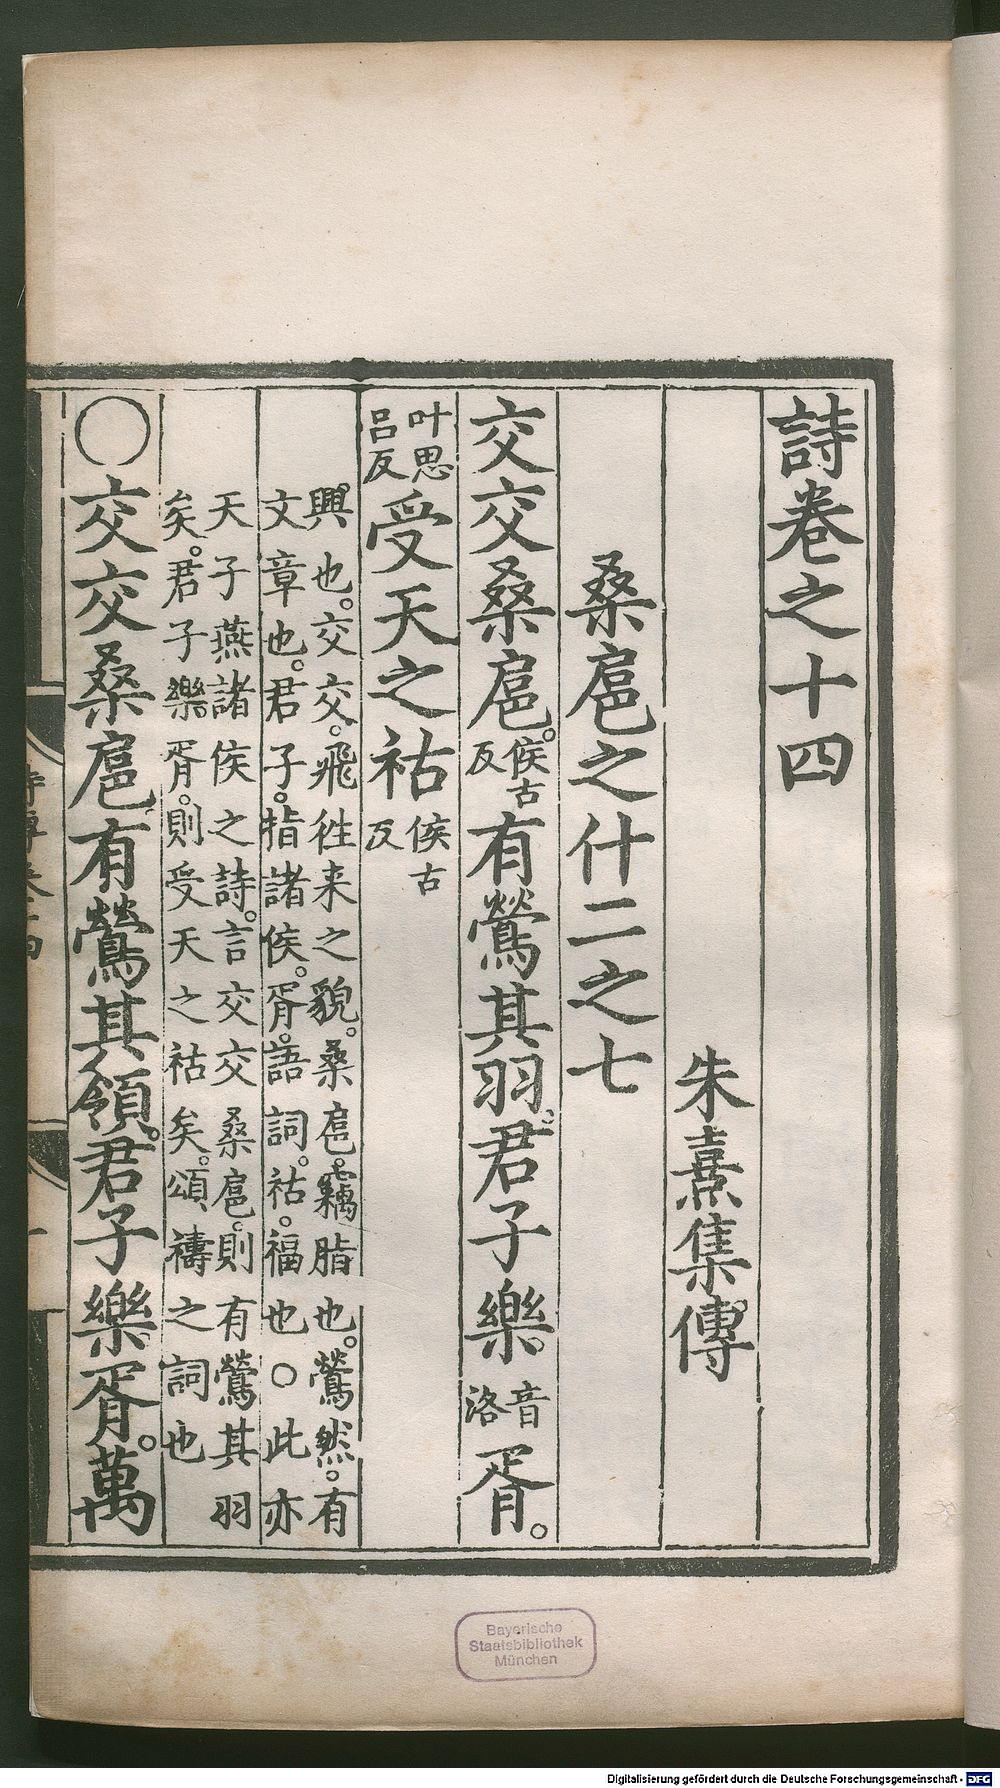 詩卷之十四
朱熹集傳
桑扈之什二之七
交交桑扈。侯古反有鶯其羽。君子樂音洛胥。
叶思呂反受天之祜侯古反
興也。交交。飛徃来之貌。桑扈。竊脂也。鶯然。有
文章也。君子。指諸侯。胥。語詞。祜。福也○此亦
天子燕諸侯之詩。言交交桑扈。則有鶯其羽
矣。君子樂胥。則受天之祜矣。頌禱之詞也
○交交桑扈。有鶯其領。君子樂胥。萬
Bayerische
Staatsbibliothek
München
Digitalisierung gefördert durch die Deutsche Forschungsgemeinschaft - DFG